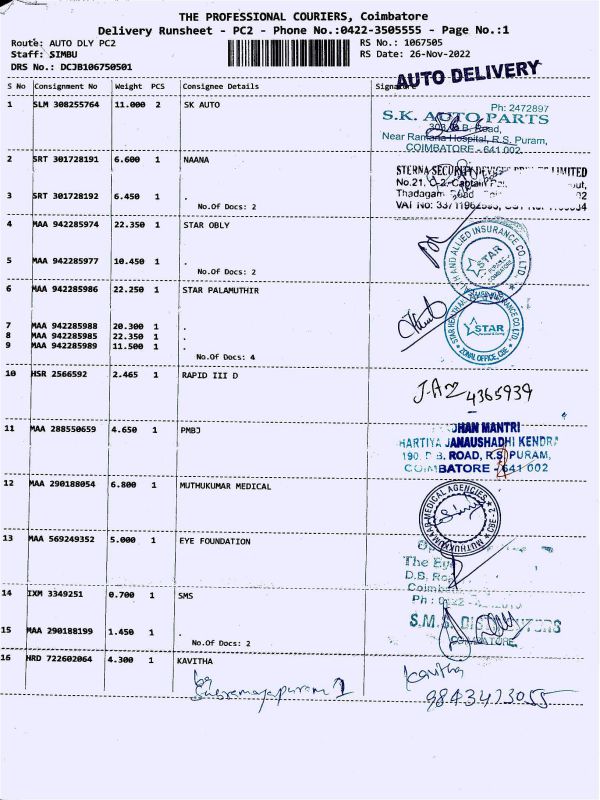 THE PROFESSIONAL COURIERS, Coimbatore
Delivery Runsheet - PC2 - Phone No.:0422-3505555 - Page No.:1
Route: AUTO DLY PC2 RS No.: 1067505
Staff: SIMBU RS Date: 26-Nov-2022
DRS No.: DCJB106750501
AUTO DELIVERY
S No Consignment No Weight PCS Consignee Details
1 SLM 308255764 11.000 2 SK AUTO
Ph: 2472897
S.K. AUTO PARTS
Road,
Near Ramana Hospital, R.S. Puram,
COIMBATORE - 641 002
2 SRT 301728191 6.600 1 NAANA
STERNA SECURITY LIMITED
No.21,
3 SRT 301728192 6.450 1 .
Thadagam Road
No.Of Docs: 2
VAT No:
4 MAA 942285974 22.350 1 STAR OBLY
AND ALLIED INSURANCE CO. LTD.
STAR
5 MAA 942285977 10.450 1 .
No.Of Docs: 2
6 MAA 942285986 22.250 1 STAR PALAMUTHIR
INSURANCE CO. LTD.
STAR
ZONAL OFFICE, CBE
7 MAA 942285988 20.300 1 .
8 MAA 942285985 22.350 1 .
9 MAA 942285989 11.500 1 .
No.Of Docs: 4
10 HSR 2566592 2.465 1 RAPID III D
4365939
11 MAA 288550659 4.650 1 PMBJ
DHAN MANTRI
HARTIYA JANAUSHADHI KENDRA
190, D.B. ROAD, R.S. PURAM,
COIMBATORE - 641 002
12 MAA 290188054 6.800 1 MUTHUKUMAR MEDICAL
MUTHUKUMAAR MEDICAL AGENCIES
CBE - 2
13 MAA 569249352 5.000 1 EYE FOUNDATION
The Eye
D.B. Road
14 IXM 3349251 0.700 1 SMS
Ph :
S.M.S. DISTRIBUTORS
COIMBATORE
15 MAA 290188199 1.450 1 .
No.Of Docs: 2
16 HRD 722602064 4.300 1 KAVITHA
Kavitha
9843473055